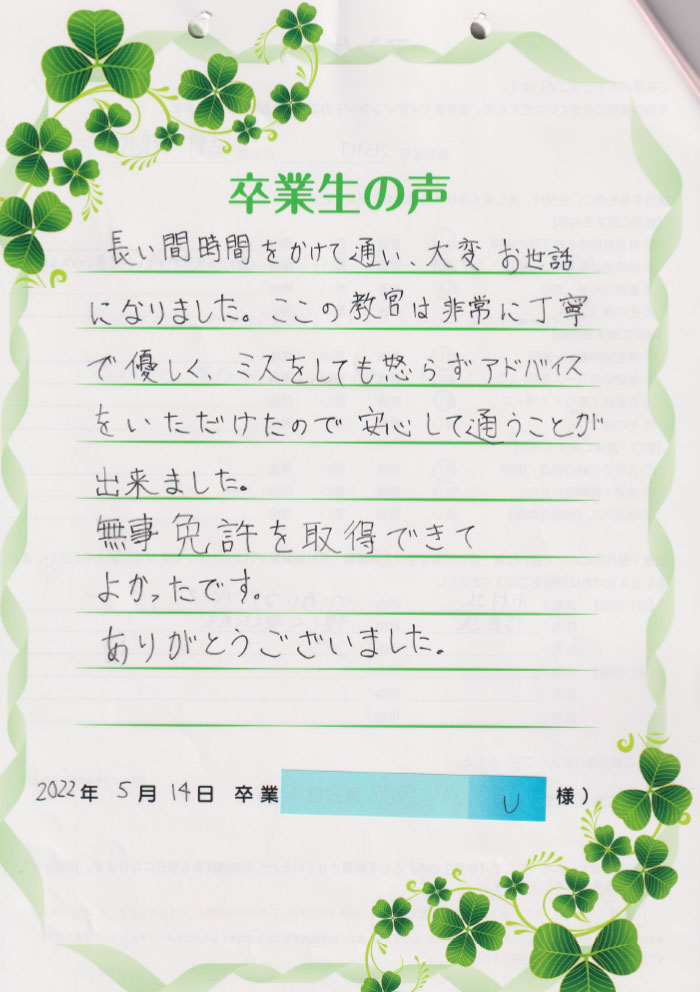 卒業生の声
長い間時間をかけて通い、大変お世話
になりました。ここの教官は非常に丁寧
で優しく、ミスをしても怒らずアドバイス
をいただけたので安心して通うことが
出来ました。
無事免許を取得できて
よかったです。
ありがとうございました。
2022年 5月 14日 卒業 U 様)